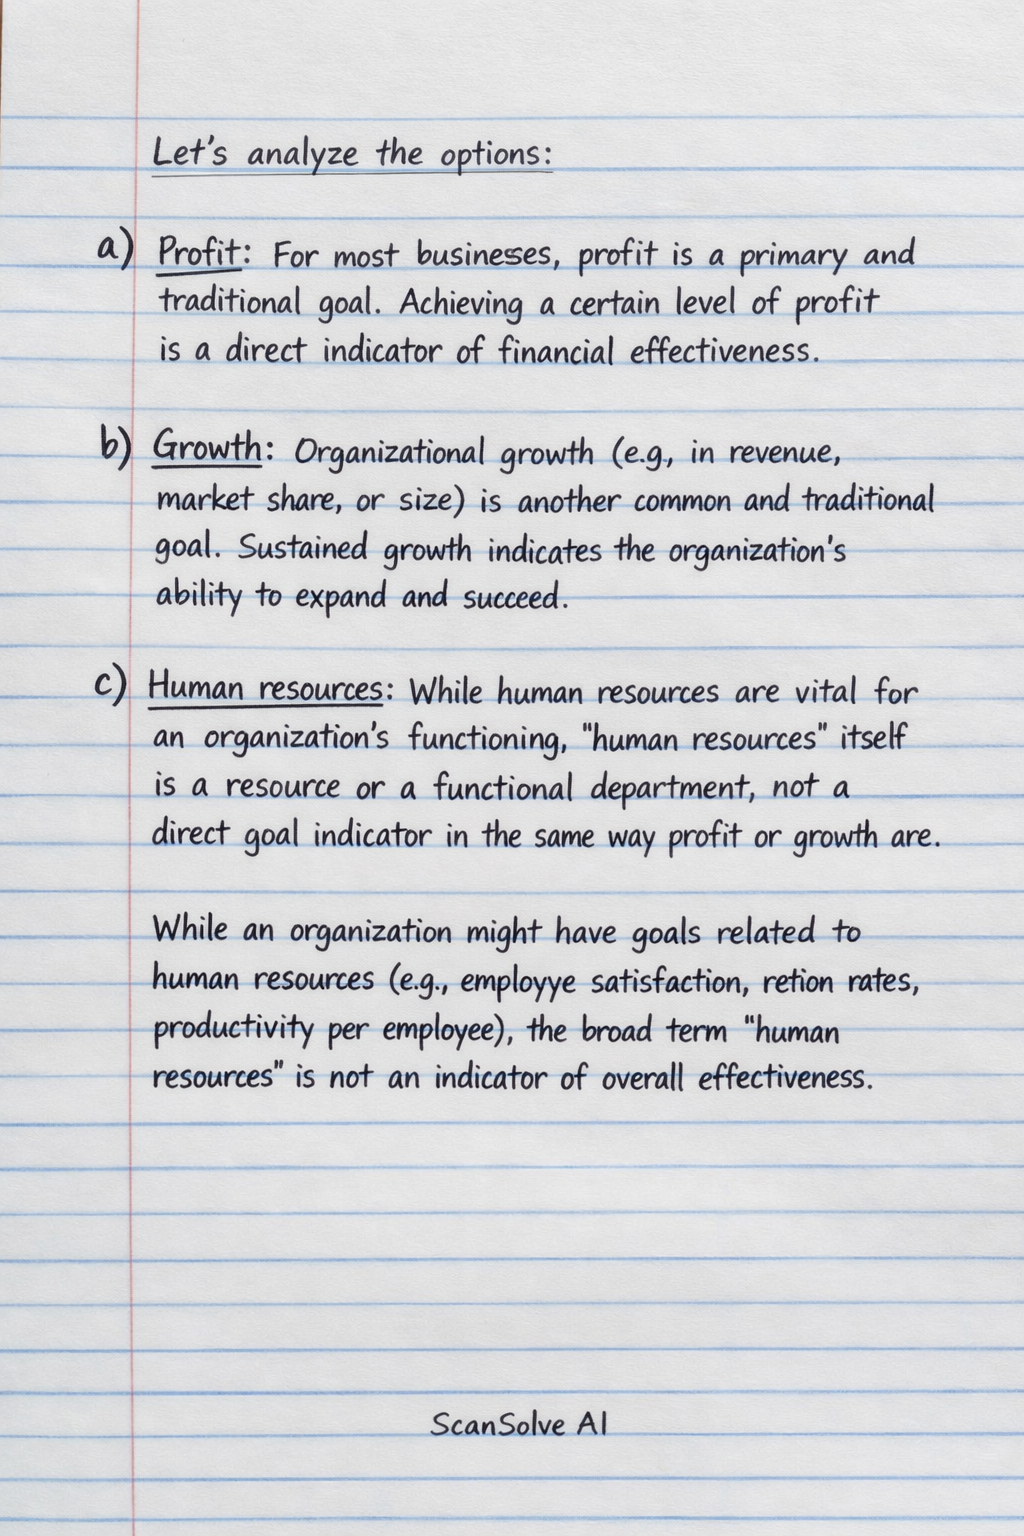 Let's analyze the options:
a) Profit: For most businesses, profit is a primary and
traditional goal. Achieving a certain level of profit
is a direct indicator of financial effectiveness.
b) Growth: Organizational growth (e.g., in revenue,
market share, or size) is another common and traditional
goal. Sustained growth indicates the organization's
ability to expand and succeed.
c) Human resources: While human resources are vital for
an organization's functioning, "human resources" itself
is a resource or a functional department, not a
direct goal indicator in the same way profit or growth are.
While an organization might have goals related to
human resources (e.g., employye satisfaction, retion rates,
productivity per employee), the broad term "human
resources" is not an indicator of overall effectiveness.
ScanSolve AI